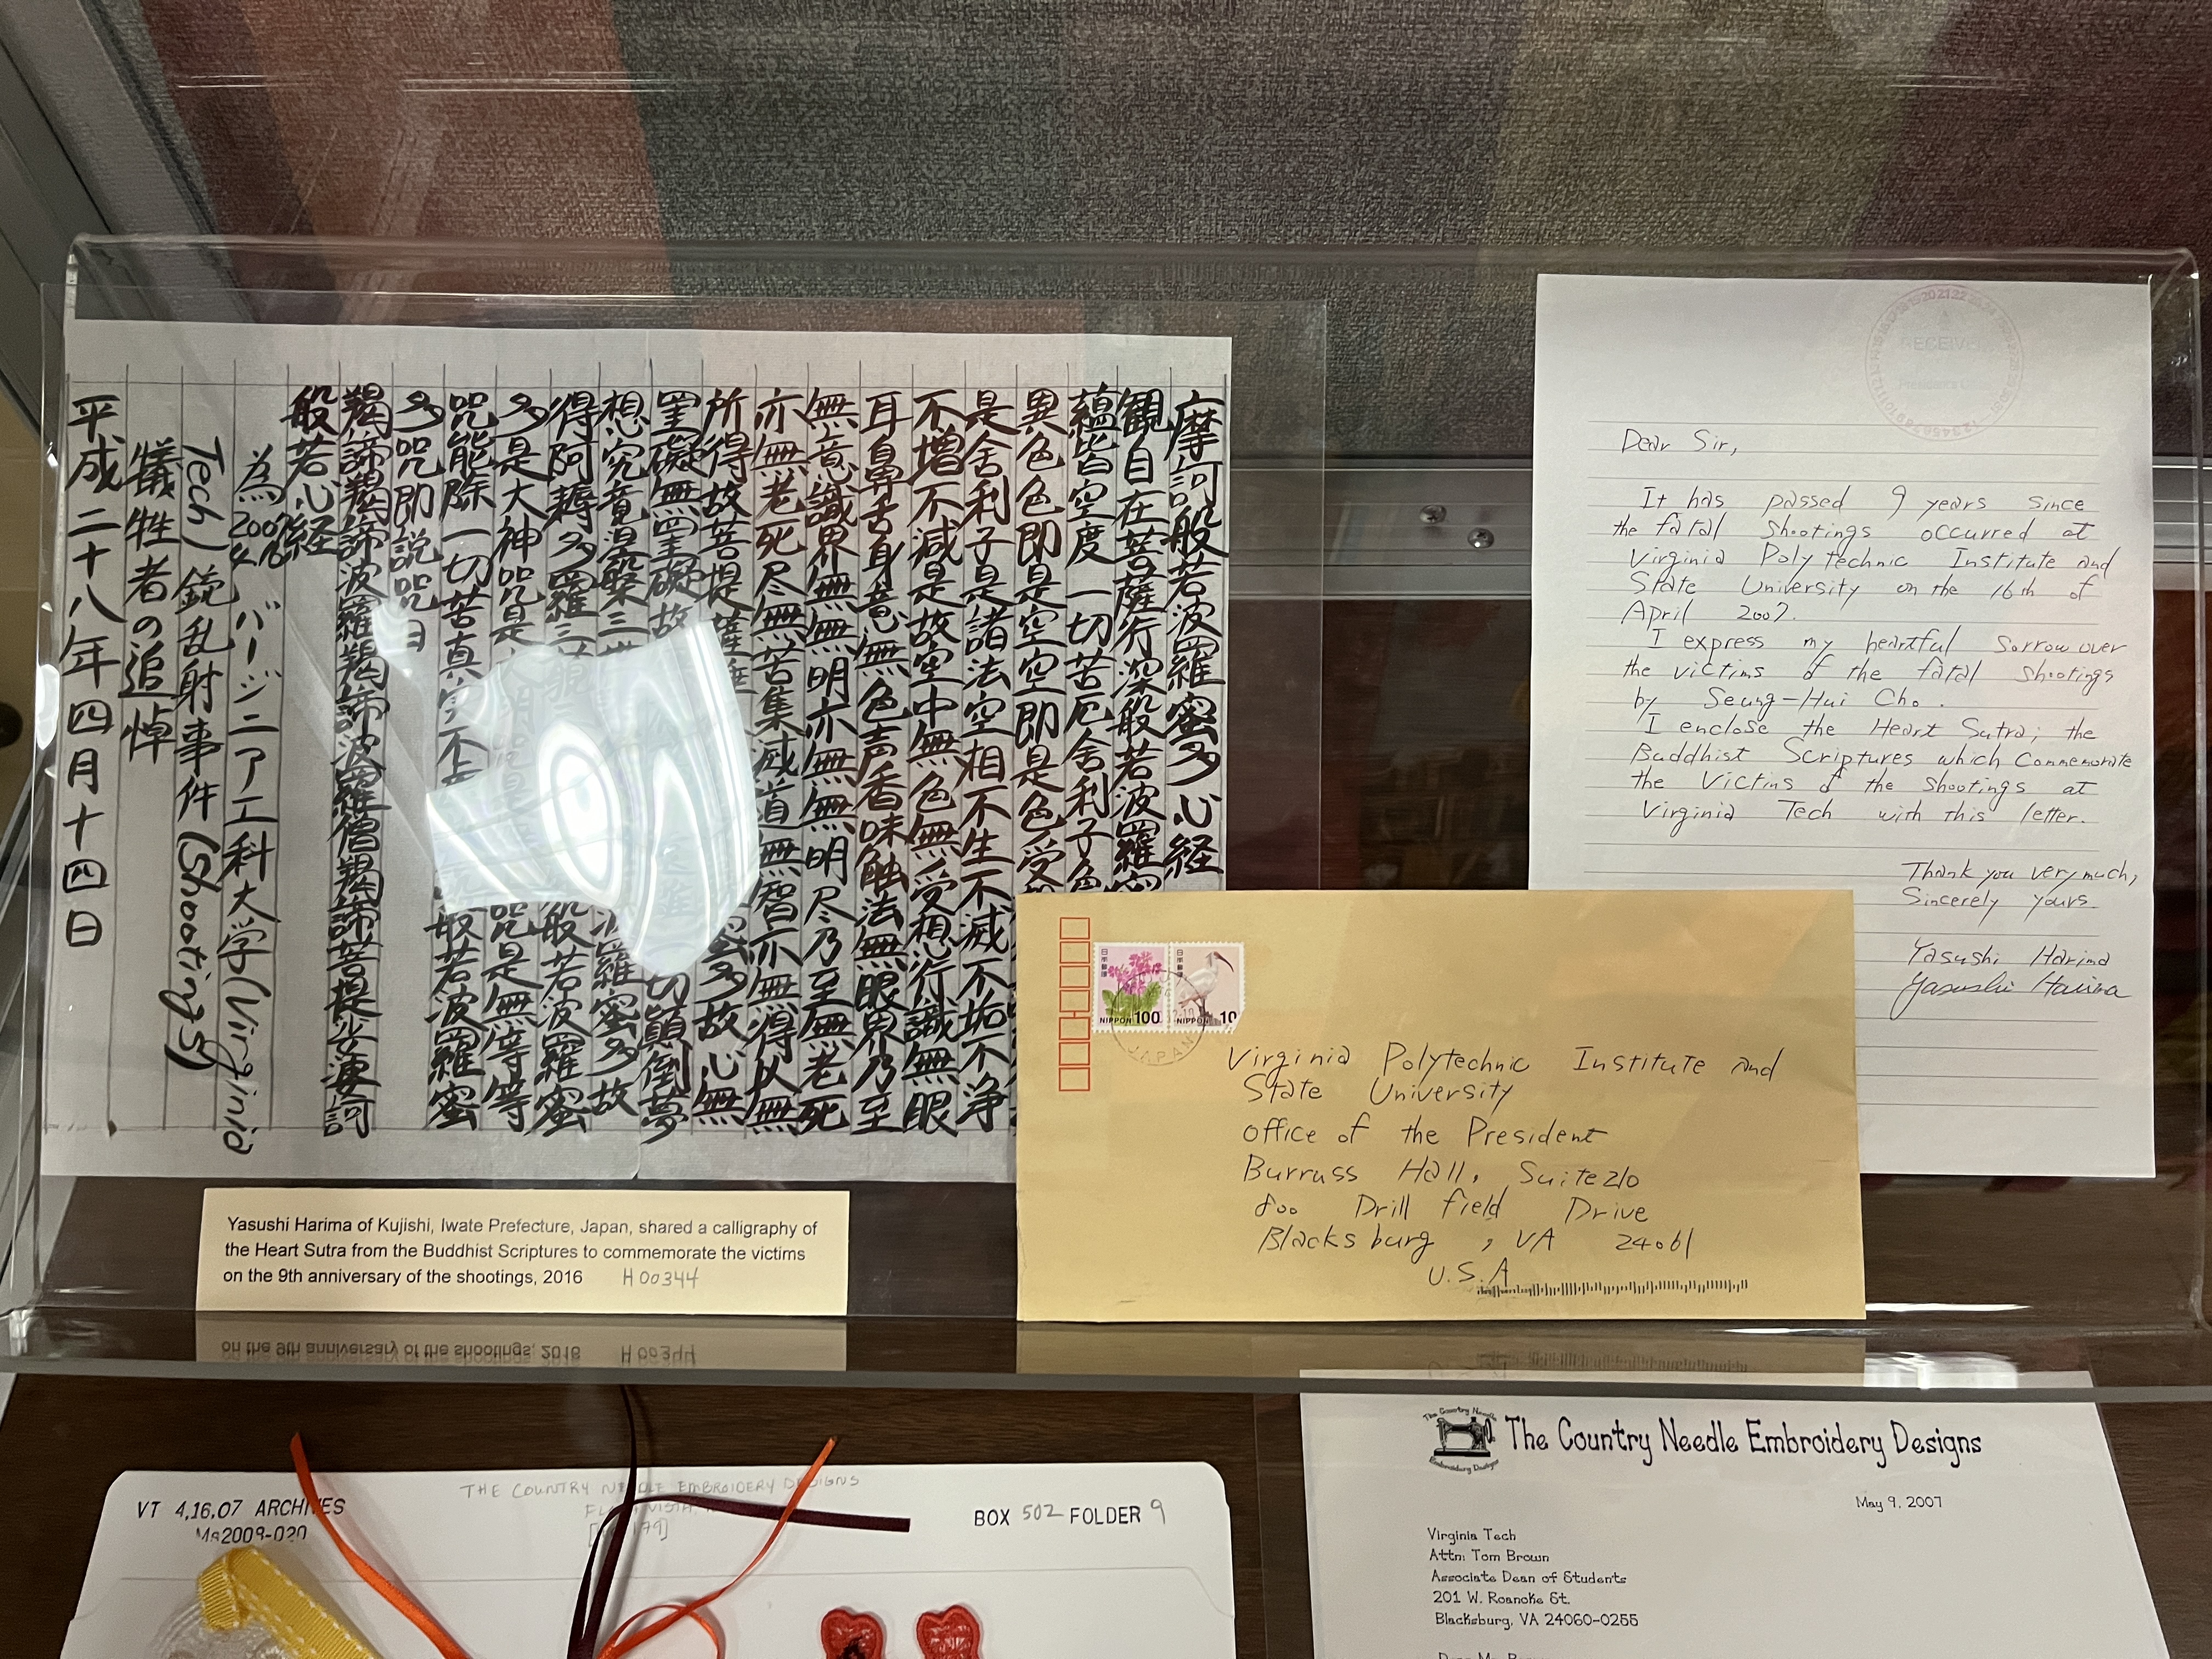 摩訶般若波羅蜜多心経
観自在菩薩行深般若波羅蜜
蘊皆空度一切苦厄舎利子色
異色色即是空空即是色受
是舎利子是諸法空相不生不滅不垢不浄
不増不減是故空中無色無受想行識無眼
耳鼻舌身意無色声香味触法無眼界乃至
無意識界無無明亦無無明尽乃至無老死
亦無老死尽無苦集滅道無智亦無得以無
所得故菩提薩埵 蜜多故心無
罣礙無罣礙故 切顛倒夢
想究竟涅槃三世 羅蜜多故
得阿耨多羅三藐 般若波羅蜜
多是大神咒是 咒是無等等
咒能除一切苦真実不 般若波羅蜜
多咒即説咒曰
羯諦羯諦波羅羯諦波羅僧羯諦菩提娑婆訶
般若心経
為2007 4.16 バージニア工科大学(Virginia
Tech)銃乱射事件(Shootings)
犠牲者の追悼
平成二十八年四月十四日
Dear Sir,
It has passed 9 years since
the fatal shootings occurred at
Virginia Polytechnic Institute and
State University on the 16th of
April 2007.
I express my heartful sorrow over
the victims of the fatal shootings
by Seung-Hui Cho.
I enclose the Heart Sutra; the
Buddhist Scriptures which commemorate
the victims of the shootings at
Virginia Tech with this letter.
Thank you very much,
Sincerely yours
Yasushi Harima
Yasushi Harima
RECEIVE
日本郵便
NIPPON 100
日本郵便
NIPPON 10
JAPAN
Virginia Polytechnic Institute and
State University
Office of the President
Burruss Hall, Suite 210
800 Drill field Drive
Blacksburg, VA 24061
U.S.A
Yasushi Harima of Kujishi, Iwate Prefecture, Japan, shared a calligraphy of
the Heart Sutra from the Buddhist Scriptures to commemorate the victims
on the 9th anniversary of the shootings, 2016 H00344
THE COUNTRY NEEDLE EMBROIDERY DESIGNS
VT 4.16.07 ARCHIVES
Ms2008-020
BOX 502 FOLDER 9
The Country Needle
Embroidery Designs
The Country Needle Embroidery Designs
May 9, 2007
Virginia Tech
Attn: Tom Brown
Associate Dean of Students
201 W. Roanoke St.
Blacksburg, VA 24060-0255